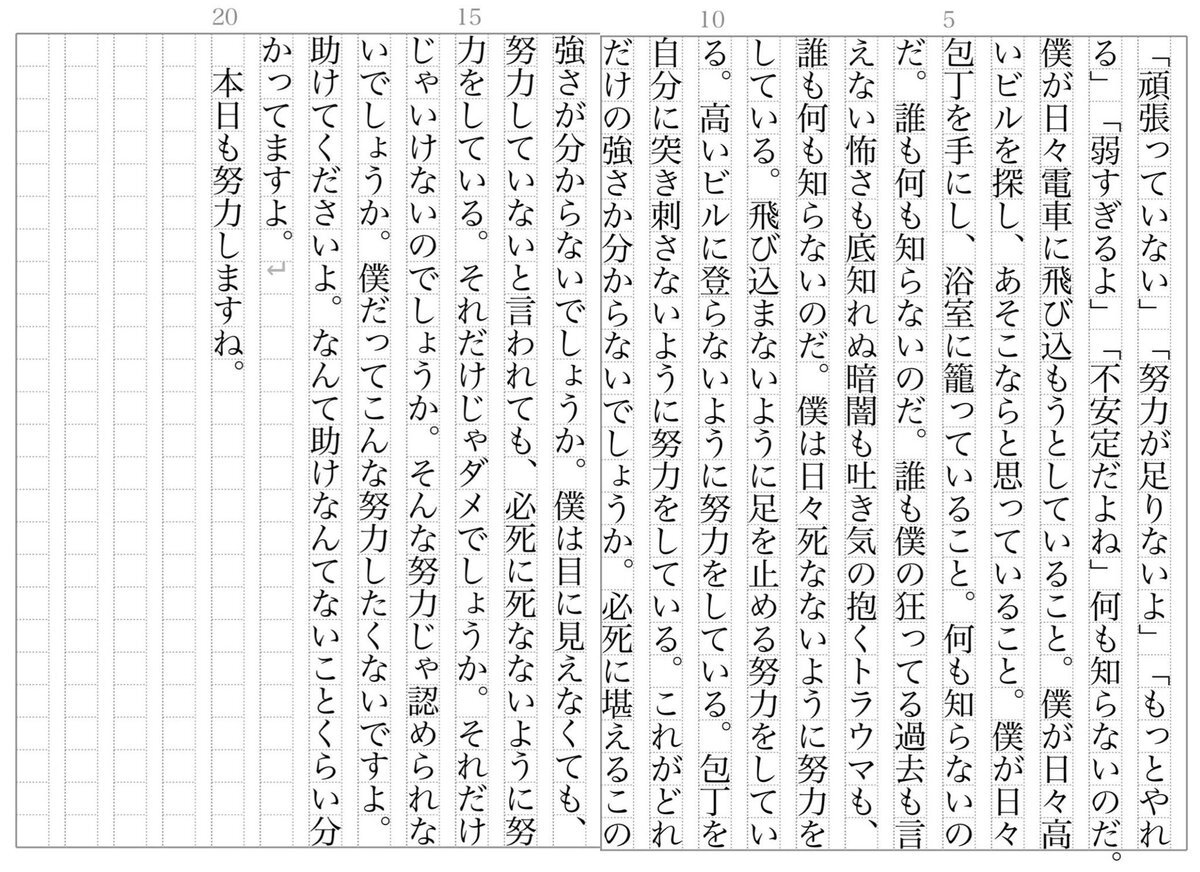 「頑張っていない」「努力が足りないよ」「もっとやれ
る」「弱すぎるよ」「不安定だよね」何も知らないのだ。
僕が日々電車に飛び込もうとしていること。僕が日々高
いビルを探し、あそこならと思っていること。僕が日々
包丁を手にし、浴室に籠っていること。何も知らないの
だ。誰も何も知らないのだ。誰も僕の狂ってる過去も言
えない怖さも底知れぬ暗闇も吐き気の抱くトラウマも、
誰も何も知らないのだ。僕は日々死なないように努力を
している。飛び込まないように足を止める努力をしてい
る。高いビルに登らないように努力をしている。包丁を
自分に突き刺さないように努力をしている。これがどれ
だけの強さか分からないでしょうか。必死に堪えるこの
強さが分からないでしょうか。僕は目に見えなくても、
努力していないと言われても、必死に死なないように努
力をしている。それだけじゃダメでしょうか。それだけ
じゃいけないのでしょうか。そんな努力じゃ認められな
いでしょうか。僕だってこんな努力したくないですよ。
助けてくださいよ。なんて助けなんてないことくらい分
かってますよ。↵
本日も努力しますね。
5
10
15
20